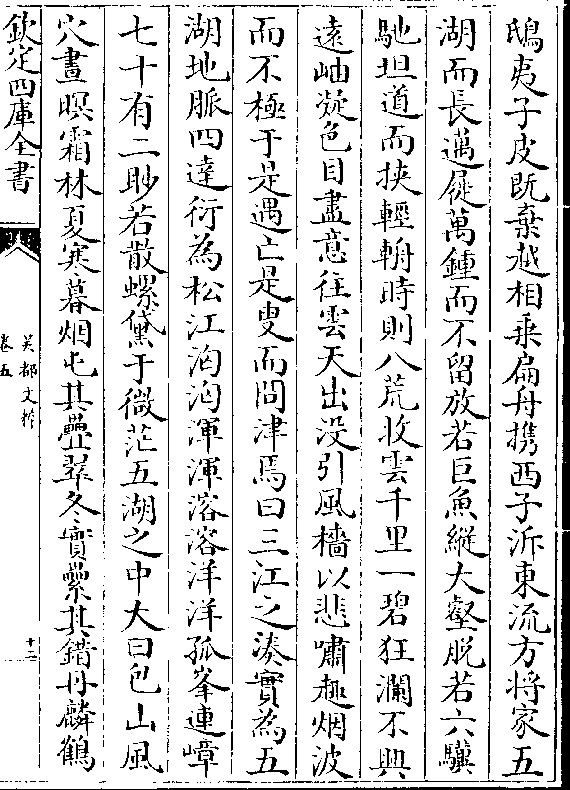 鴟夷子皮既棄越相乗扁舟携西子泝東流方将家五
湖而長邁屣萬鍾而不留放若巨魚縱大壑脱若六驥
馳坦道而挾輕輈時則八荒收雲千里一碧狂瀾不興
遠岫凝色目盡意往雲天出没引風檣以悲嘯趣烟波
而不極于是遇亡是叟而問津焉曰三江之湊實為五
湖地脈四達衍為松江洶洶渾渾溶溶洋洋孤峯連嶂
七十有二眇若散螺黛于微茫五湖之中大曰包山風
穴晝暝霜林夏寒暮烟屯其疊翠冬實纍其錯丹麟鶴
欽定四庫全書
吴都文粹
卷五
十二